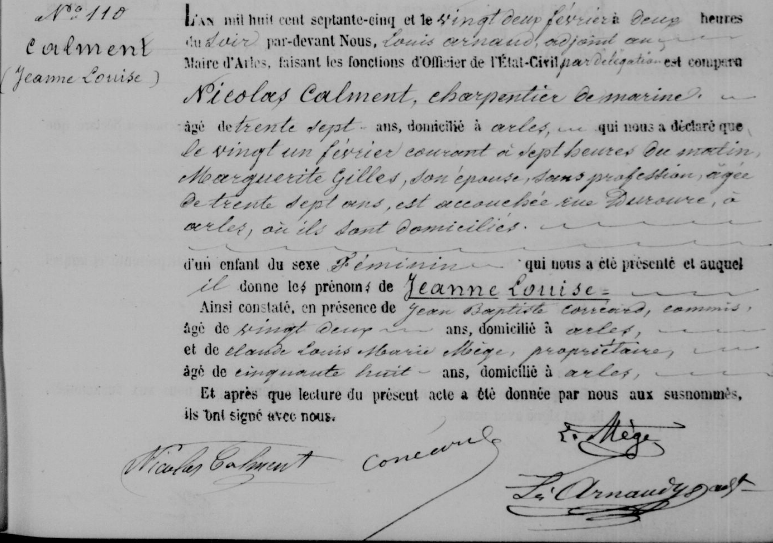 N° 110
Calment
(Jeanne Louise)
L'AN mil huit cent septante-cinq et le vingt deux février à deux heures
du soir par-devant Nous, Louis arnaud, adjoint au
Maire d'Arles, faisant les fonctions d'Officier de l'État-Civil par délégation est comparu
Nicolas Calment, charpentier de marine.
âgé de trente sept ans, domicilié à arles, qui nous a déclaré que
le vingt un février courant à sept heures du matin,
Marguerite Gilles, son épouse, sans profession, âgée
de trente sept ans, est accouchée rue Duroure, à
arles, où ils sont domiciliés.
d'un enfant du sexe Féminin qui nous a été présenté et auquel
il donne les prénoms de Jeanne Louise
Ainsi constaté, en présence de Jean Baptiste Corréard, commis,
âgé de vingt deux ans, domicilié à arles,
et de claude Louis Marie Mège, propriétaire,
âgé de cinquante huit ans, domicilié à arles,
Et après que lecture du présent acte a été donnée par nous aux susnommés,
ils ont signé avec nous.
L. Mège
Nicolas Calment Corréard
Ls Arnaud adjt